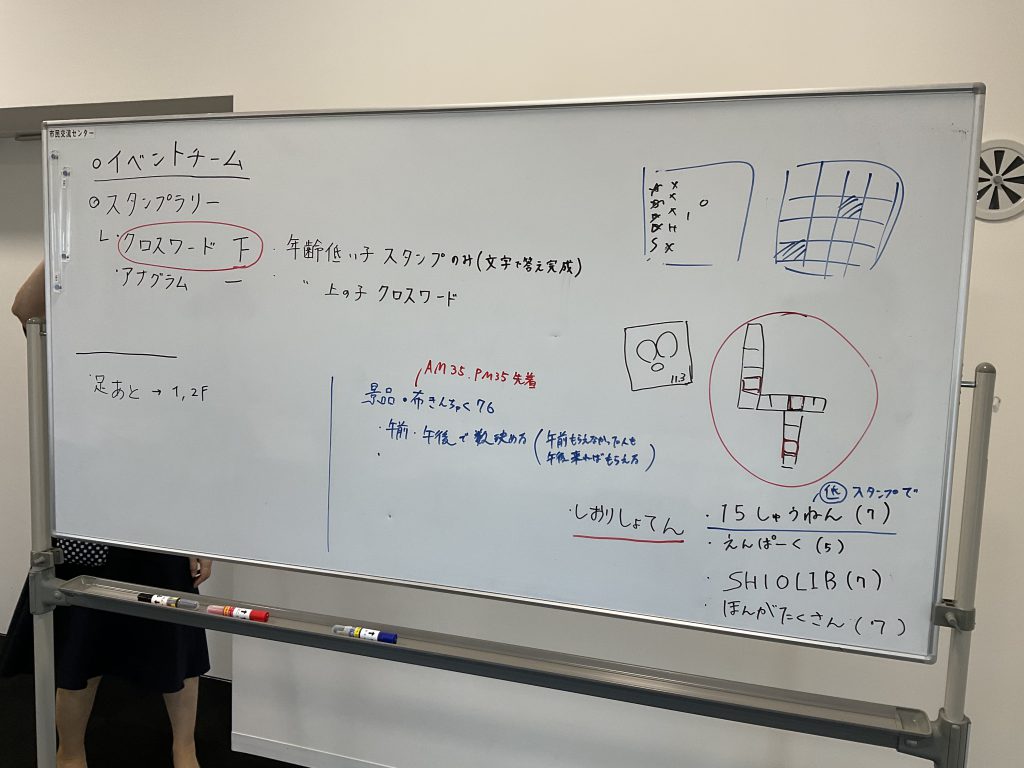 市民交流センター
○イベントチーム
◎スタンプラリー
・クロスワード 下
・アナグラム 一
・年齢低い子 スタンプのみ(文字で答え完成)
〃 上の子 クロスワード
・足あと → 1,2F
AM35. PM35 先着
景品・布きんちゃく 76
・午前・午後で数決め方
(午前もらえなかった人も
午後来ればもらえる)
11.3
・しおりしょてん
低 スタンプで
・15しゅうねん(7)
・えんぱーく(5)
・SHIOLIB(7)
・ほんがたくさん(7)